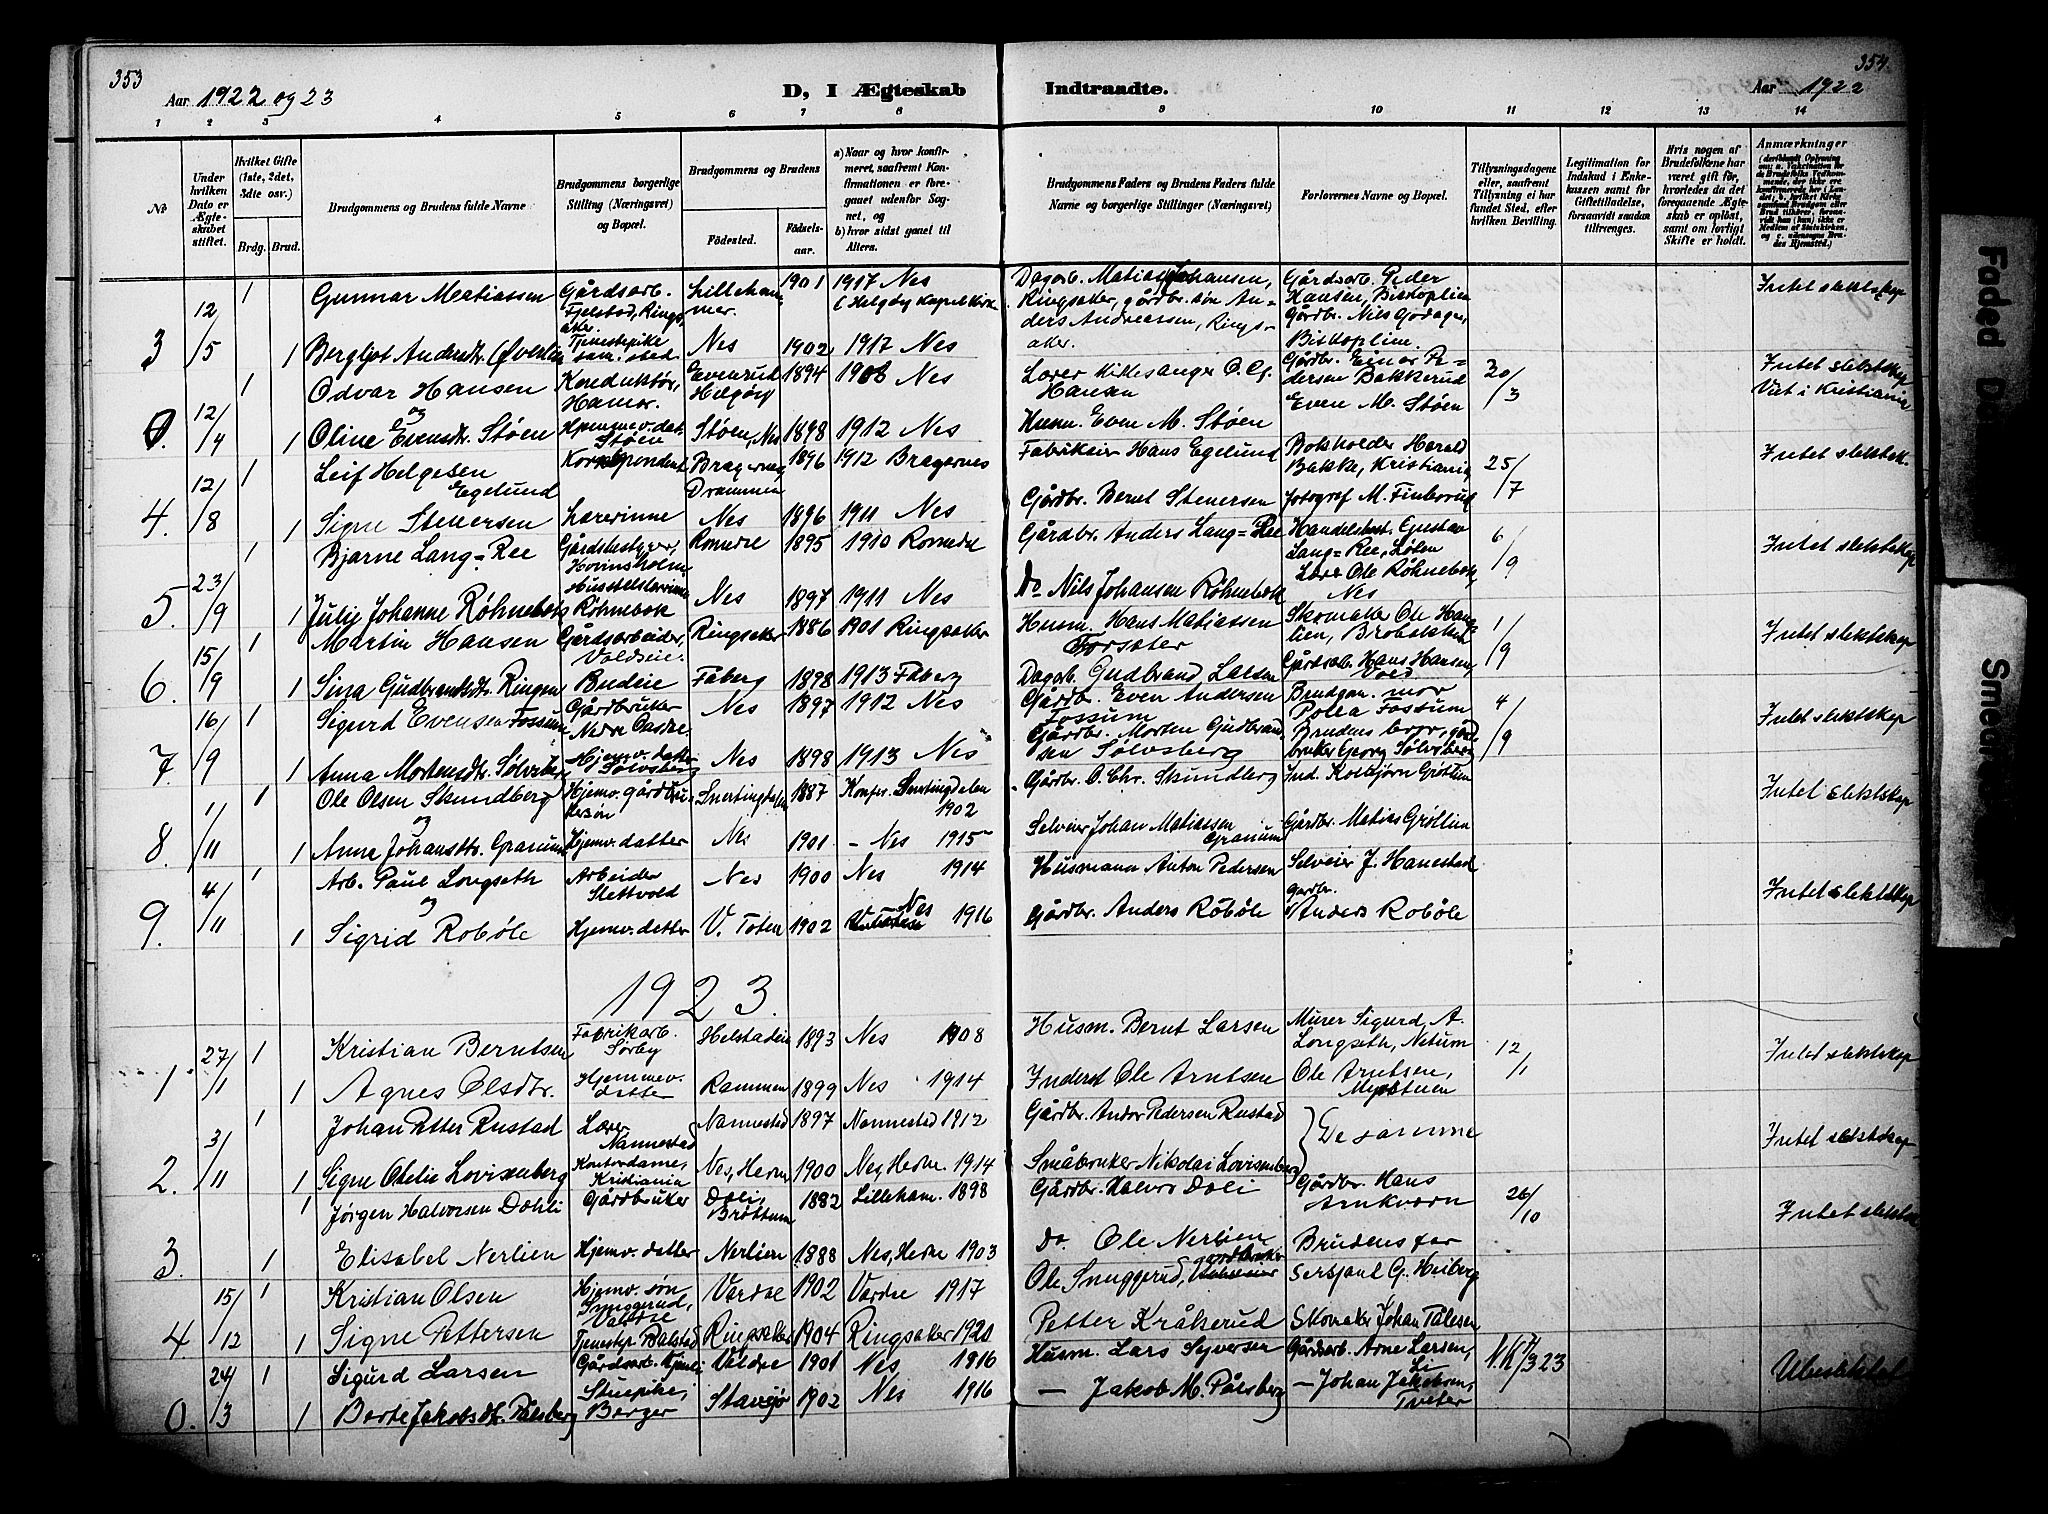 353
Aar 1922 og 23
D, I Ægteskab
Indtraadte.
Aar 1922
354
1 2 3 4 5 6 7 8 9 10 11 12 13 14
No
Under hvilken Dato er Ægteskabet stiftet.
Hvilket Gifte (1ste, 2det, 3dte osv.)
Brdg. Brud.
Brudgommens og Brudens fulde Navne
Brudgommens borgerlige Stilling (Næringsvei) og Bopæl.
Brudgommens og Brudens
Fødested.
Fødselsaar.
a) Naar og hvor konfirmeret, saafremt Konfirmationen er foregaaet udenfor Sognet, og
b) hvor sidst gaaet til Alters.
Brudgommens Faders og Brudens Faders fulde Navne og borgerlige Stillinger (Næringsvei)
Forlovernes Navne og Bopæl.
Tillysningsdagene eller, saafremt Tillysning ei har fundet Sted, efter hvilken Bevilling.
Legitimation for Indskud i Enkekassen samt for Giftetilladelse, forsaavidt saadan tiltrænges.
Hvis nogen af Brudefolkene har været gift før, hvorledes da det foregaaende Ægteskab er opløst, samt om lovligt Skifte er holdt.
Anmærkninger
12/5 1 Gunnar Matiassen Gårdsarb. Fjelstad, Ringsaker. Lillehammer. 1901 1917 Nes (Helgøy Kapel Kirke Dagarb. Matias Johansen, Ringsaker, gårdbr. søn Anders Andreassen, Ringsaker. Gårdsarb. Peder Hansen, Biskoplien Gårdbr. Nils Godager, Biskoplien. Intet slektskap
3 1 Bergljot Andersdtr. Øverlien Tjenestepike sam. sted Nes 1902 1917 Nes
12/4 1 Odvar Hansen og Konduktør, Hamar. Evenrud Helgøy 1894 1908 Nes Lærer Kirkesanger O. G. Hansen Gårdbr. Einar Pedersen Bakkerud 30/3 Intet slektskap Viet i Kristiania
0. 1 Oline Evensdtr. Støen Hjemmev. dat. Støen Støen, Nes 1898 1912 Nes Husm. Even M. Støen Even M. Støen
12/8 1 Leif Helgesen Egelund Korrespondent Bragernes Drammen 1896 1912 Bragernes Fabrikeier Hans Egelund Bokholder Harald Bakke, Kristiania 25/7 Intet slektsk.
4. 1 Signe Stenersen Lærerinne Nes 1896 1911 Nes Gårdbr. Bernt Stenersen fotograf M. Finborud
23/9 1 Bjarne Lang-Ree Gårdsbestyrer, Hovinsholm Romedal 1895 1910 Romedal Gårdbr. Anders Lang-Ree Handelsbest. Gustav Lang-Ree, Løten 6/9 Intet slektskap
5. 1 Julie Johanne Røhnebæk Røhnebæk Nes 1897 1911 Nes Do Nils Johansen Røhnebæk Lærer Ole Røhnebæk, Nes
15/9 1 Martin Hansen Gårdsarbeider, Voldseie. Ringsaker 1886 1901 Ringsaker Husm. Hans Matiassen Forsæter Skomaker Ole Hanslien, 1/9 Intet slektskap
6. 1 Sina Gudbrandsdtr. Ringen Budeie Fåberg 1898 1913 Fåberg Dagarb. Gudbrand Larsen Gårdsarb. Hans Hansen, Vold
16/9 1 Sigurd Evensen Fossum Gårdbruker Nes 1897 1912 Nes Gårdbr. Even Andersen Fossum Brudgom. mor Polea Fossum 4/9 Intet slektskap
7. 1 Anna Mortensdtr. Sølvsberg Hjemv. datter Sølvsberg Nes 1898 1913 Nes Gårdbr. Morten Gudbrandsen Sølvsberg Brudens bror, gårdbruker Georg Sølvsberg
1/11 1 Ole Olsen Skundberg og Hjemv. gårdbrukersøn Snertingdalen 1887 Konfer. Snertingdalen 1902 Gårdbr. O. Chr. Skundberg Ind. Kolbjørn Grøtlien Intet slektskap
8. 1 Anna Johansdtr. Granum Hjemv. datter Nes 1901 - Nes 1915 Selveier Johan Matiassen Granum Gårdbr. Matias Grøtlien
4/11 1 Arb. Paul Longseth og Arbeider Slettvold Nes 1900 Nes 1914 Husmann Anton Pedersen Selveier J. Hanestad Intet slektskap
9. 1 Sigrid Robøle Hjemv. datter V. Toten 1902 Nes 1916 Gårdbr. Anders Robøle gårdbr. Anders Robøle
1923.
27/1 1 Kristian Berntsen Fabrikarb. Sørby Helstadeie 1893 Nes 1908 Husm. Bernt Larsen Murer Sigurd A. Longseth, Netum 12/1 Intet slektskap
1 1 Agnes Olsdtr. Hjemmev. datter Rammen 1899 Nes 1914 Inderst Ole Arntsen Ole Arntsen,
3/11 1 Johan Petter Rustad Lærer Nannestad Nannestad 1897 Nannestad 1912 Gårdbr. Andor Pedersen Rustad De samme Intet slektskap
2. 1 Signe Otelie Lovisenberg Kontordame, Kristiania Nes, Hedm. 1900 Nes, Hedm. 1914 Småbruker Nikolai Lovisenberg
1 Jørgen Halvorsen Dohli Gårdbruker Doli, Brøttum 1882 Lilleham. 1898 Gårdbr. Halvor Doli Gårdbr. Hans Arnkværn 26/10 Intet slektsk
3. 1 Elisabet Nerlien Hjemv. datter Nerlien 1888 Nes, Hedm. 1903 Do. Ole Nerlien Brudens far
15/12 1 Kristian Olsen Hjemv. søn Snuggerud, Vardal Vardal 1902 Vardal 1917 Ole Snuggerud, gårdbruker Sersjant G. Heiberg
4 1 Signe Pettersen Tjenestep. Balstad Ringsaker 1904 Ringsaker 1920 Petter Kråkerud Skomaker Johan Pålesen
24/3 1 Sigurd Larsen Gårdsarb. Veldre 1901 Nes 1916 Husm. Lars Syversen Gårdsarb. Arne Larsen, Li N.K. 7/3 23 Ubeslektet
0. 1 Borte Jakobsdtr. Pålsberg Stuepike, Berger Stavsjø 1902 Nes 1916 — Jakob M. Pålsberg — Johan Jakobsen, Tveter
Faded D
Smear